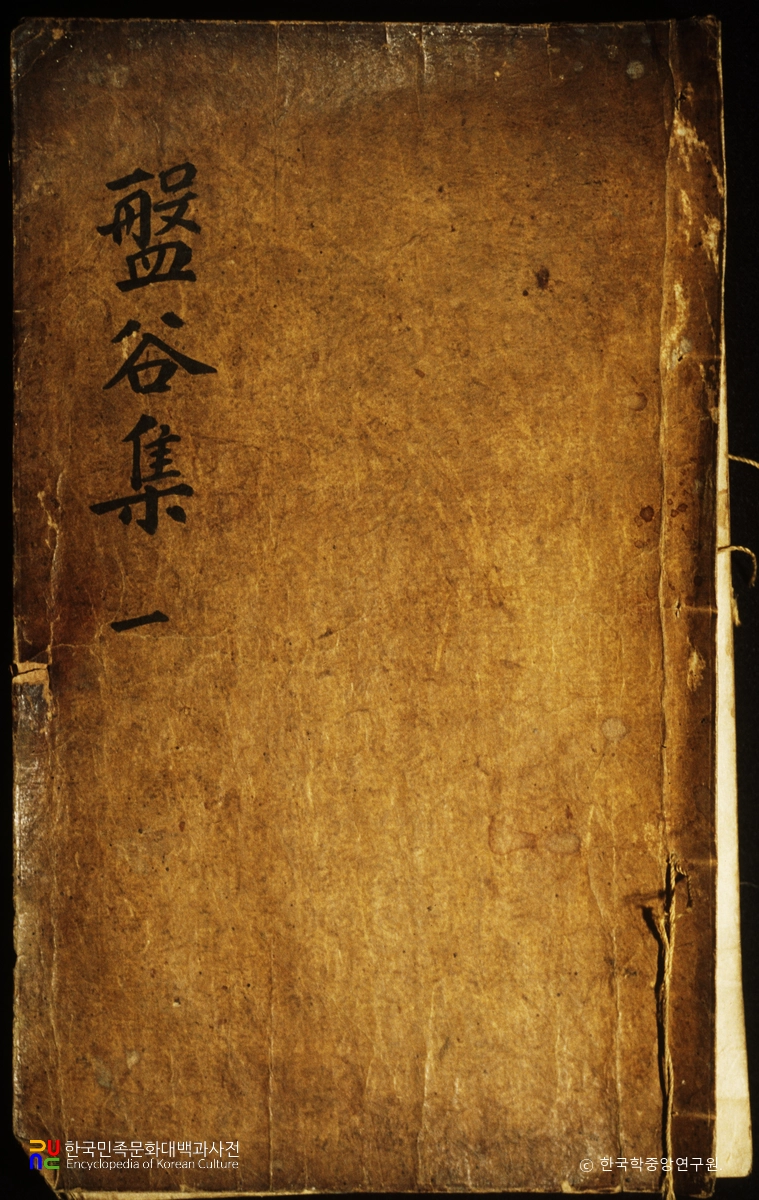 盤谷集
一
한국민족문화대백과사전
Encyclopedia of Korean Culture
© 한국학중앙연구원